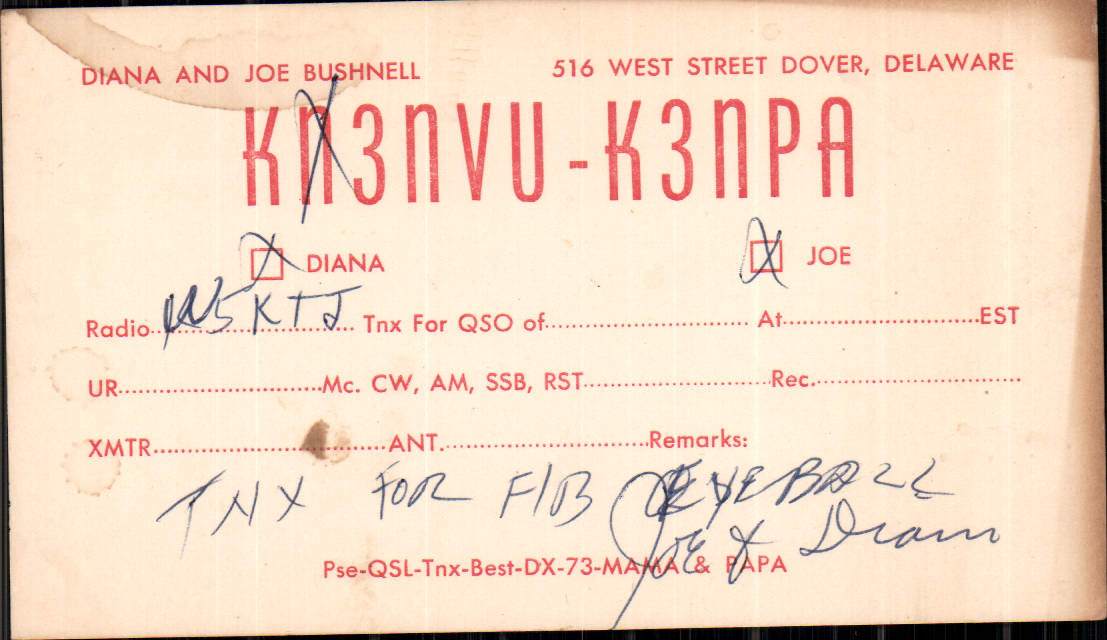 DIANA AND JOE BUSHNELL 516 WEST STREET DOVER, DELAWARE
KN3NVU - K3NPA
X DIANA X JOE
Radio W5KTJ Tnx For QSO of At EST
UR Mc. CW, AM, SSB, RST Rec.
XMTR ANT. Remarks:
TNX FOR F/B EYEBALL
JOE & Diana
Pse-QSL-Tnx-Best-DX-73-MAMA & PAPA